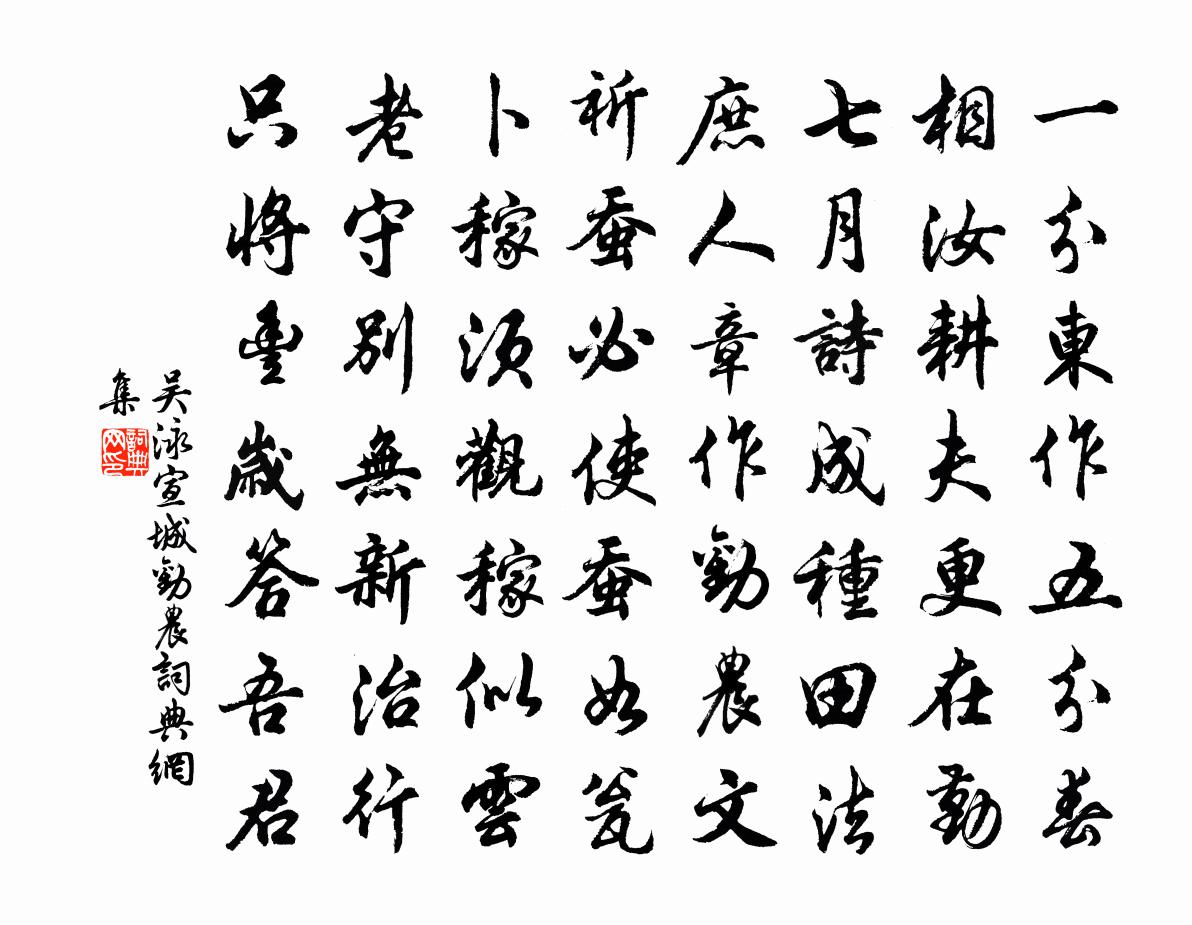 一分東作五分春
相汝耕夫更在勤
七月詩成種田法
庶人章作勸農文
祈蚕必使蚕如瓮
卜稼須觀稼似雲
老守別無新治行
只將豊歳答吾君
吴泳宣城勸農詞典網
集
詞典网印